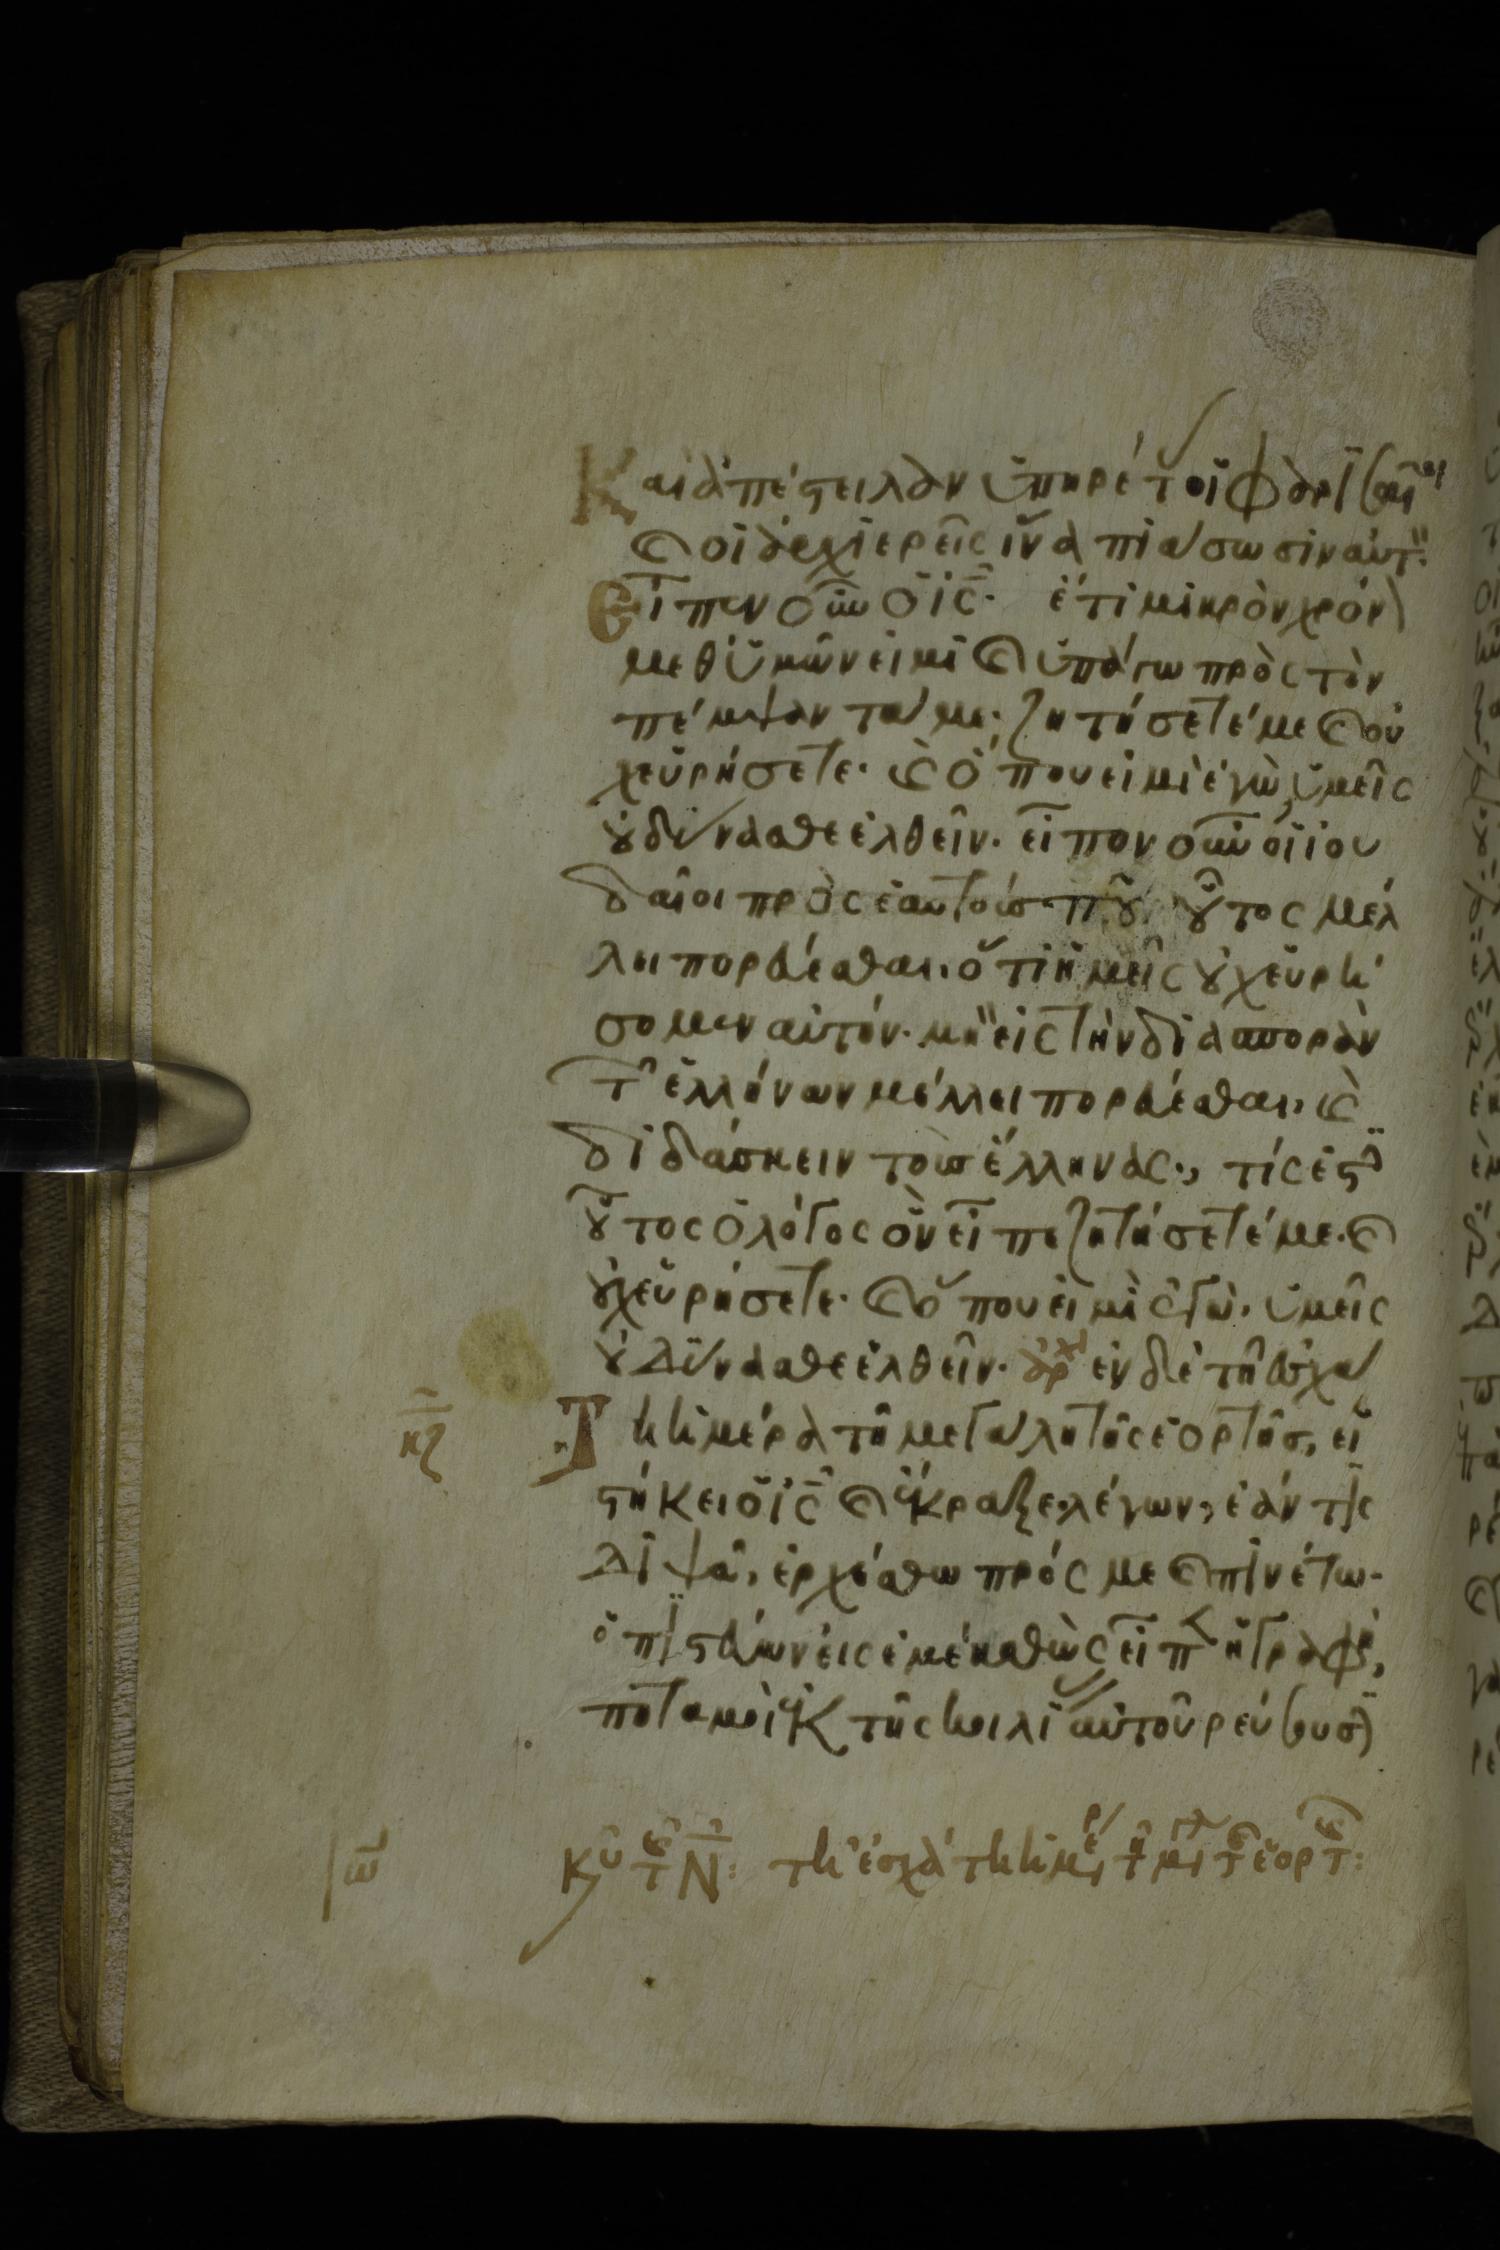 Καὶ ἀπέστειλαν ὑπηρέτ οἱ φαρισαῖοι
κ οἱ ἀρχιερεῖς ἵνα πιάσωσιν αὐτ.
Εἶπεν οὖν ὁ ις. ἔτι μικρὸν χρόν
μεθ ὑμῶν εἰμι κ ὑπάγω πρὸς τὸν
πέμψαντά με. ζητήσετέ με κ οὐ
χ εὑρήσετε. κ ὅπου εἰμὶ ἐγὼ, ὑμεῖς
οὐ δύνασθε ἐλθεῖν. εἶπον οὖν οἱ ἰου
δαῖοι πρὸς ἑαυτούς. ποῦ οὗτος μέλ
λει πορεύεσθαι. ὅτι ἡμεῖς οὐχ εὑρή
σομεν αὐτόν. μὴ εἰς τὴν διασπορὰν
τ ἑλλήνων μέλλει πορεύεσθαι, κ
διδάσκειν τοὺς ἕλληνας., τίς ἐστ
οὗτος ὁ λόγος ὃν εἶπε ζητήσετέ με. κ
οὐχ εὑρήσετε. κ ὅπου εἰμὶ ἐγὼ. ὑμεῖς
οὐ δύνασθε ἐλθεῖν. ἀρχ ἐν δὲ τῆ ἐσχά
Τη ἡμέρα τῆ μεγάλη τῆς ἑορτῆς, εἱ
στήκει ὁ ις κ ἔκραξε λέγων, ἐάν τις
διψᾶ, ἐρχέσθω πρός με κ πινέτω.
ὁ πιστεύων εἰς ἐμέ καθὼς εἶπ ἡ γραφὴ,
ποταμοὶ ἐκ τῆς κοιλί αὐτοῦ ρεύσουσ
κζ
Κυ τ Ν: τη ἐσχάτη ἡμέρ τ μ τ ἑορτ: